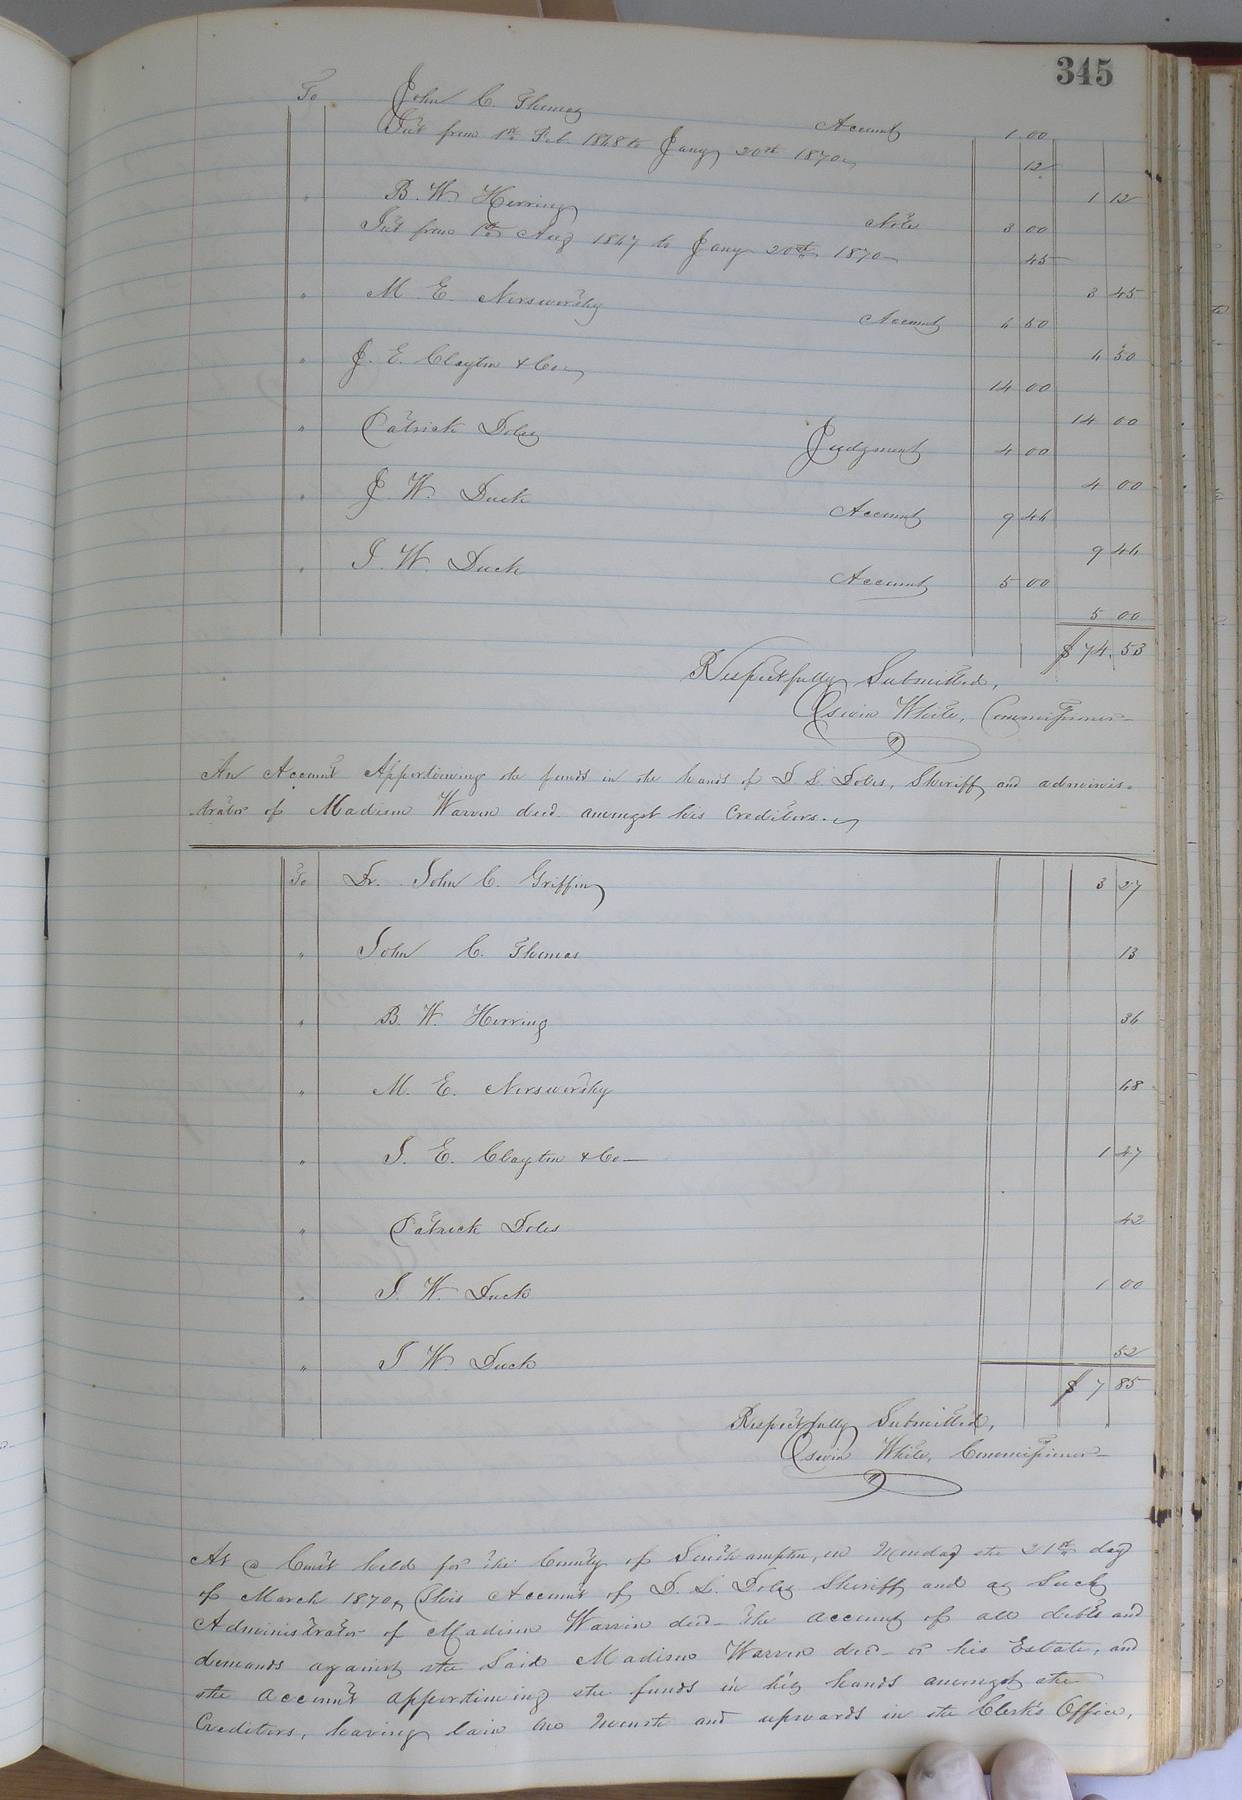 345
To John C. Thomas Account 1 00
Int from 1st Feb. 1868 to Jany 20th 1870 12
1 12
" B. W. Herring Note 3 00
Int from 1st Aug 1867 to Jany 20th 1870 45
3 45
" M. E. Norsworthy Account 4 50
4 50
" J. E. Clayton & Co. 14 00
14 00
" Patrick Doles Judgment 4 00
4 00
" J. W. Duck Account 9 44
9 44
" J. W. Duck Account 5 00
5 00
$ 74.53
Respectfully Submitted,
White, Commissioner
An Account Apportioning the funds in the hands of D. L. Doles, Sheriff and adminis-
trator of Madison Warren decd. amongst his Creditors.
To Dr. John C. Griffin 3 27
" John C. Thomas 13
" B. W. Herring 36
" M. E. Norsworthy 48
" J. E. Clayton & Co 1 47
" Patrick Doles 42
" J. W. Duck 1 00
" J. W. Duck 52
$ 7 85
Respectfully Submitted,
White, Commissioner
At a Court held for the County of Southampton, on Monday the 21st day
of March 1870, This Account of D. L. Doles Sheriff and as such
Administrator of Madison Warren decd - the account of all debts and
demands against the said Madison Warren decd - or his Estate, and
the account apportioning the funds in his hands amongst the
Creditors, having lain one month and upwards in the Clerk's Office,